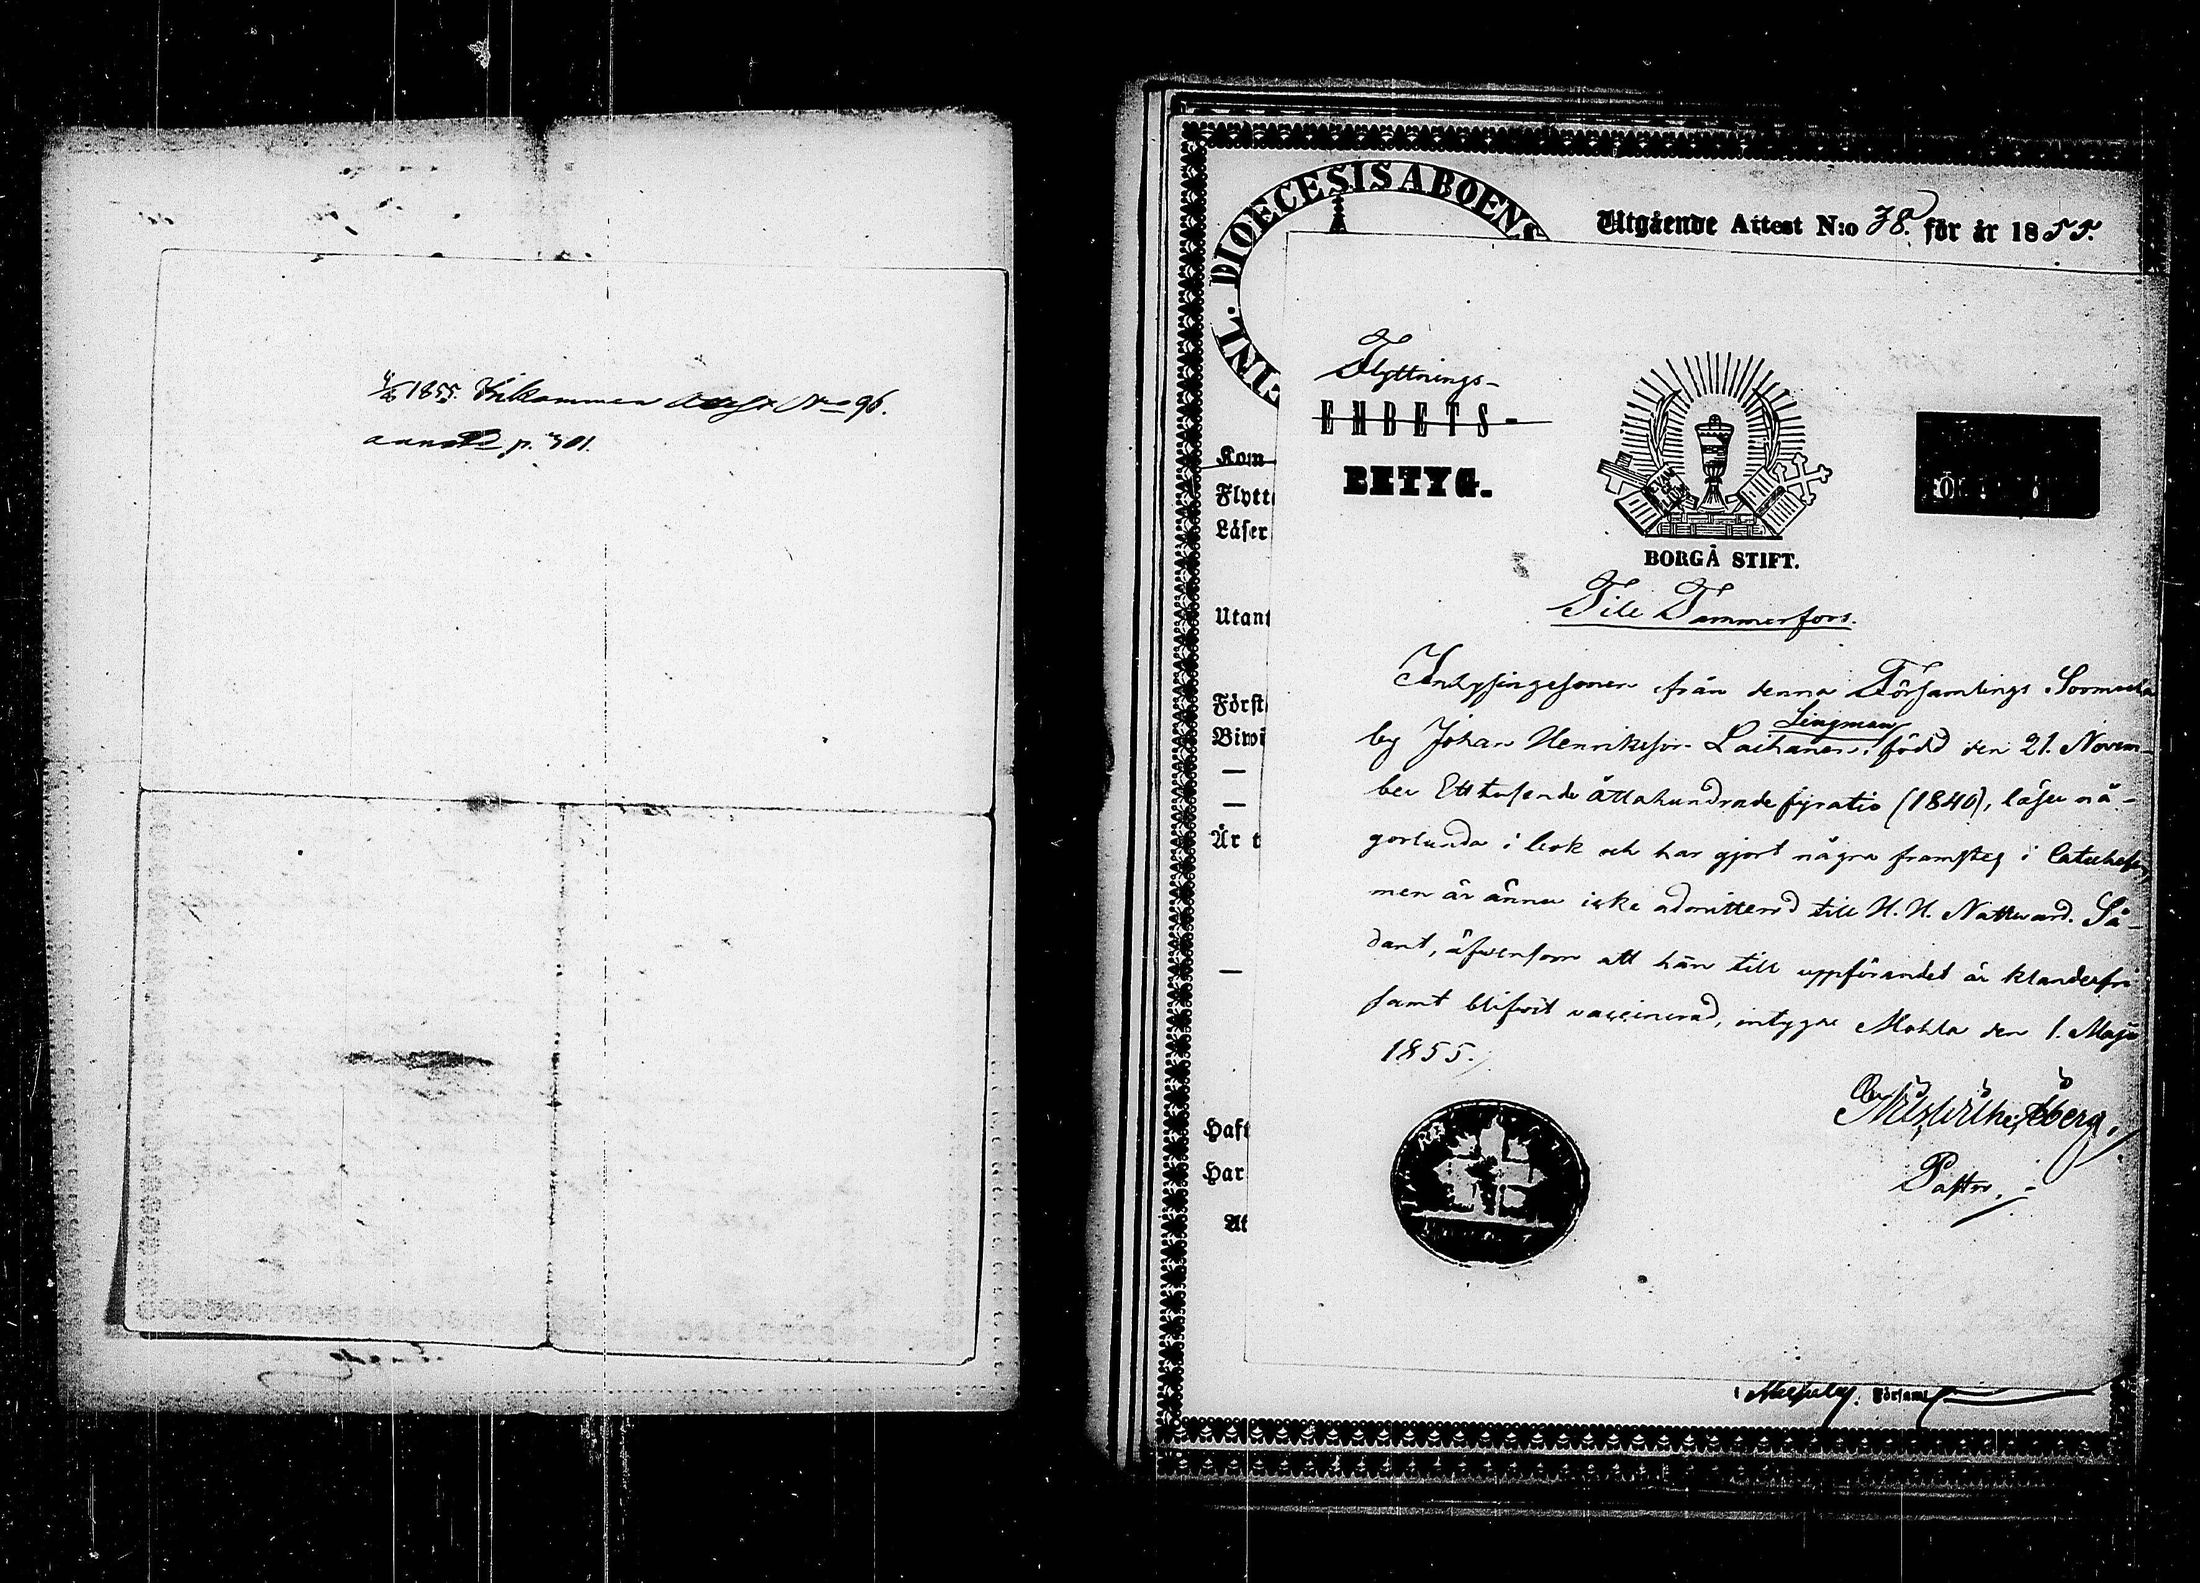 4/6 1855. Inkommen Attest No 96.
annoterad p. 301.
FINL. DIOECESIS ABOENS
Utgående Attest N:o 38. för år 1855.
Flyttnings-
EHBETS-
BETYG.
BORGÅ STIFT.
Kom
Flytt
Läser
Utant
Först
Biwi
—
—
Är t
—
Haft
Har
At
Till Tammerfors.
Inhysingesonen från denna Församlings
Lingman
by Johan Henriksson Laihanen, född den 21. Novem-
ber Ett tusende åttahundrade fyratio (1840), läser nå-
gorlunda i bok och har gjort några framsteg i Catechesen,
men är ännu icke admitterad till H. H. Nattward. Så-
dant, äfwensom att han till uppförandet är klanderfri
samt blifwit vaccinerad, intygar Mohla den 1. Maji
1855.
Pastor.
i Församl